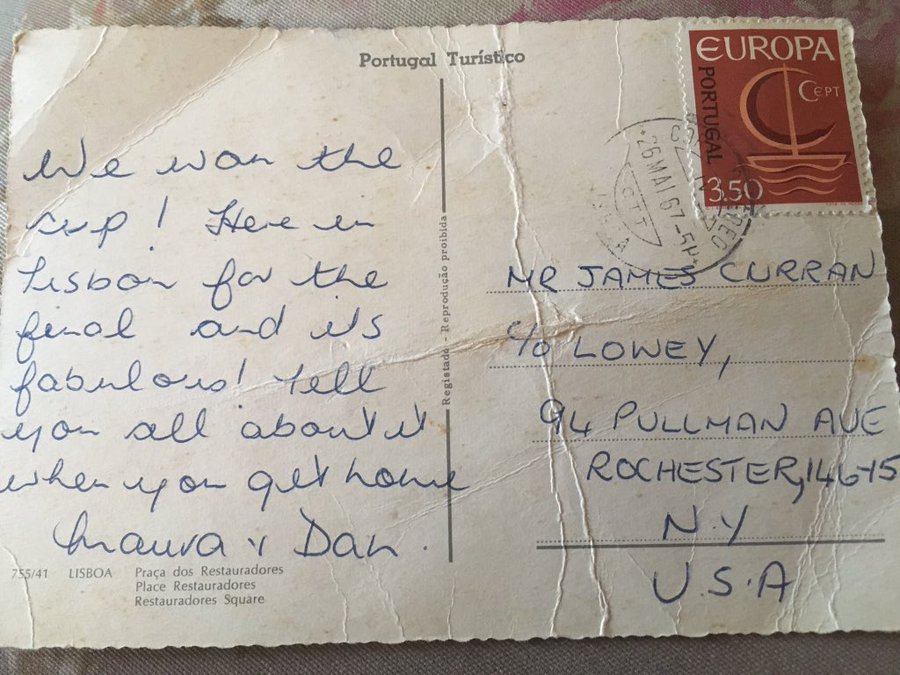 Portugal Turístico
We won the
cup! Here in
Lisbon for the
final and its
fabulous! Tell
you all about it
when you get home
Maura & Dan.
755/41 LISBOA Praça dos Restauradores
Place Restauradores
Restauradores Square
Registado - Reprodução proibida
EUROPA
CEPT
PORTUGAL
3$50
26 MAI 67-5M
CTT
MR JAMES CURRAN
c/o LOWEY,
94 PULLMAN AVE
ROCHESTER, 14615
N.Y
U.S.A